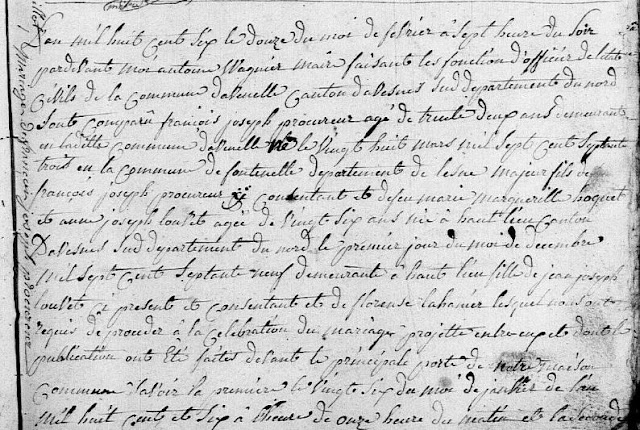 en mil huit cent six le douze du moi de fevrier à sept heure du soir
pardevant moi antoine Wagnier mair faisant les fonction d'officier de letat
Civils de la commun davenelle Canton davesnes sud departement du nord
sont comparû françois joseph procureur age de trente deux ans demeurant
en laditte commune le vingt huit mars mil sept cent septante
trois en la commun de fontenelle departement de lesne majeur fils de
françois joseph procureur ci consentant et defeu marie marguerille hoquet
et anne joseph louvet agée de vingt six ans née à haut lieu Canton
Davesnes sud departement du nord le premier jour du moi de decembre
mil sept cent septante neuf demeurant à haut lieu fille de jean joseph
louvet ci present et consentant et de florense lahanier lesquel nous ont
requis de proceder à la Celebration du mariage projetté entre eux et dont le
publication ont été faites devant le principale porte de notre maison
commun savoir la premiere le vingt six du moi de janvier de lan
mil huit cent et six à lheure de onze heure du matin et la seconde